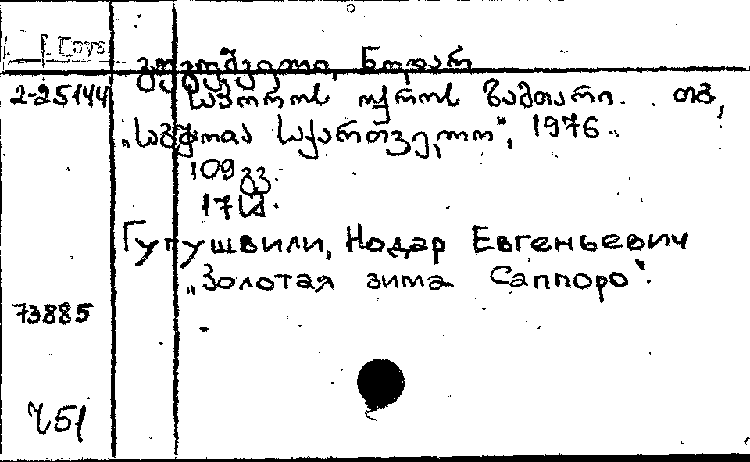 გუგუშვილი, ნოდარ
2-25144 საპოროს ოქროს ზამთარი. თბ,
„საბჭოთა საქართველო", 1976.
109 გვ.
17 სმ.
Гугушвили, Нодар Евгеньевич
„Золотая зима Саппоро".
73885